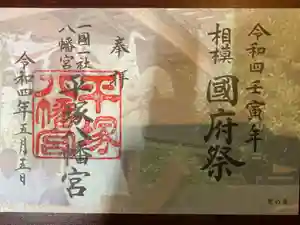 令和四壬寅年
相模
國府祭
奉拝
一國一社
八幡宮
平塚八幡宮
令和四年五月五日
平塚
八幡宮